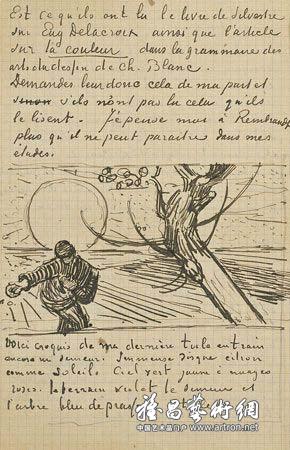 Est ce qu'ils ont lu le livre de Silvestre
sur Eug Delacroix ainsi que l'article
sur la couleur dans la grammaire des
arts du dessin de Ch. Blanc.
Demandez leur donc cela de ma part et
sinon s'ils n'ont pas lu cela qu'ils
le lisent. J'pense moi à Rembrandt
plus qu'il ne peut paraitre dans mes
études.
Voici croquis de ma dernière toile en train
encore un semeur. Immense disque citron
comme soleil. Ciel vert jaune à nuages
roses. le terrain violet le semeur et
l'arbre bleu de prusse
雅昌藝術網
中国艺术品门户 www.artron.net